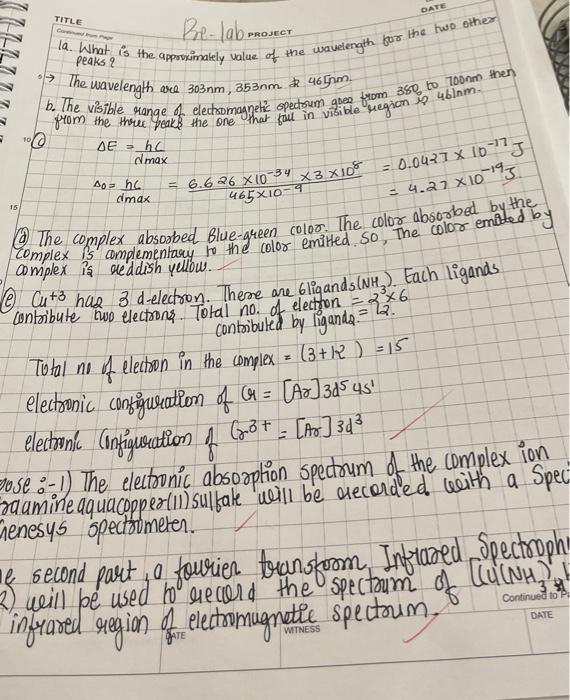 TITLE
DATE
Continued from Page
Pre-lab PROJECT
1a. What is the approximately value of the wavelength for the two other
peaks?
5 → The wavelength are 303nm, 353nm & 465nm.
b. The visible range of electromagnetic spectrum goes from 380 to 700nm then
from the three peaks the one that fall in visible region is 461nm.
10 c ΔE = hc
λmax
Δo = hc = 6.626 × 10⁻³⁴ × 3 × 10⁸ = 0.0427 × 10⁻¹⁷ J
λmax 465 × 10⁻⁹ = 4.27 × 10⁻¹⁹ J.
15
d The complex absorbed Blue-green color. The color absorbed by the
complex is complementary to the color emitted. So, The color emitted by
complex is reddish yellow.
e Cr+3 has 3 d-electron. There are 6 ligands (NH3). Each ligands
contribute two electrons. Total no. of electron = 2 × 6
contributed by ligands = 12.
Total no of electron in the complex = (3+12) = 15
electronic configuration of Cr = [Ar] 3d⁵ 4s¹
electronic Configuration of Cr³⁺ = [Ar] 3d³
pose :- 1) The electronic absorption spectrum of the complex ion
raamineaquacopper(II) sulfate will be recorded with a Spec
Genesys spectrometer.
e second part, a fourier transfrom Infrared Spectroph
2) will be used to record the spectrum of [Cu(NH3)
infrared region of electromagnetic spectrum.
Continued to P
DATE
WITNESS
DATE